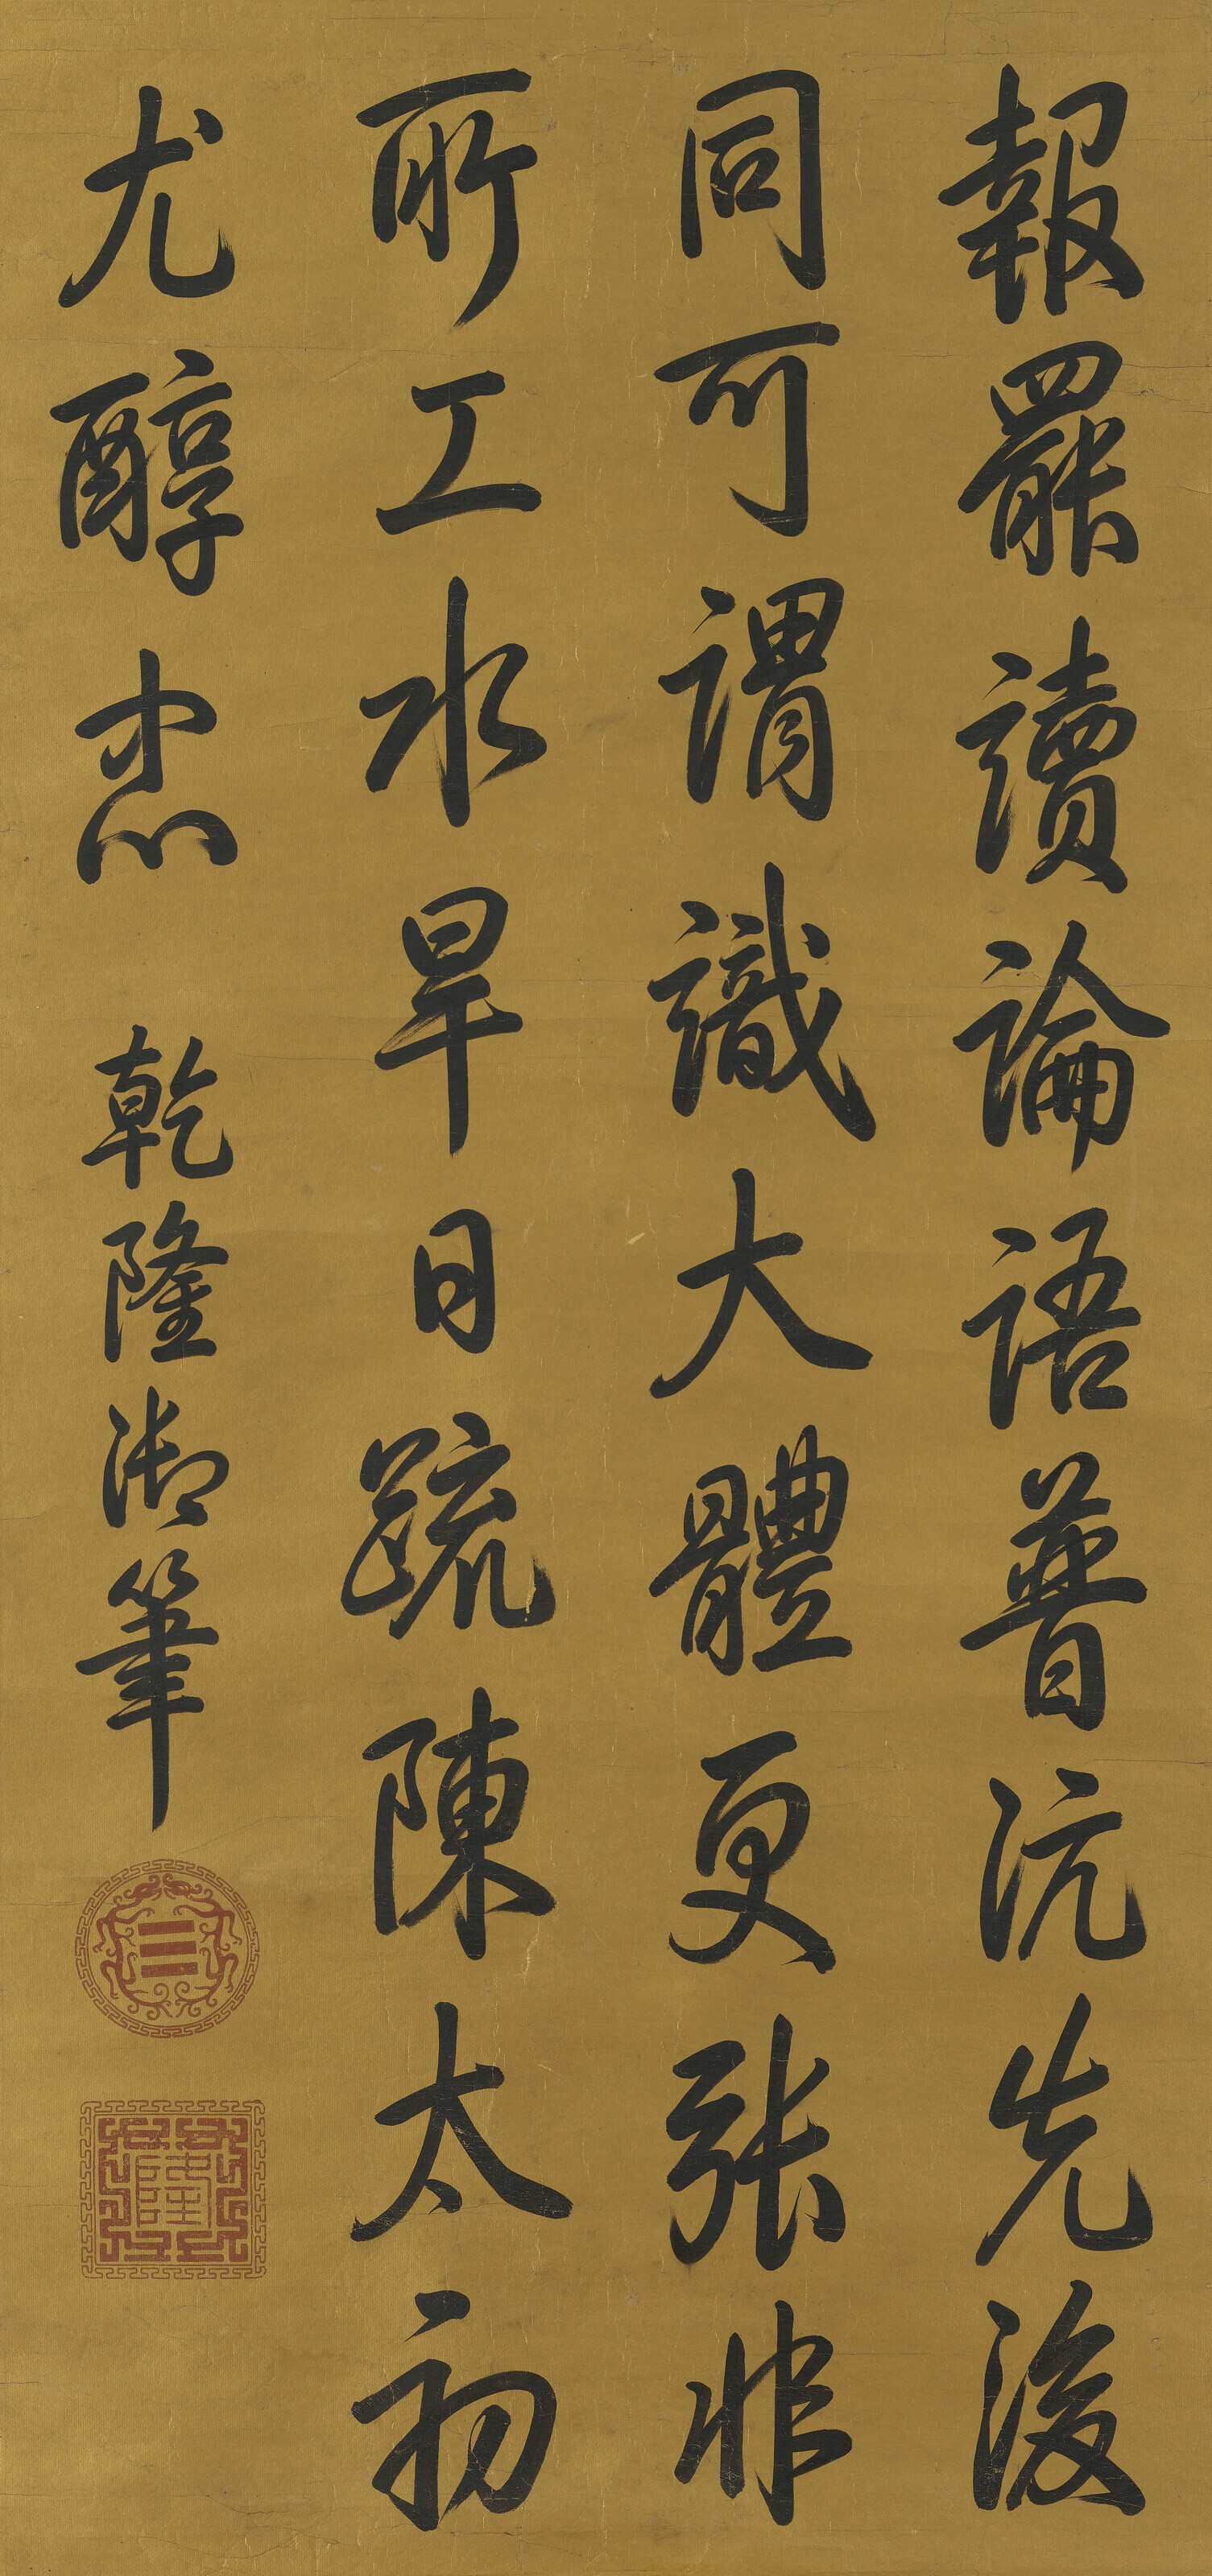 報罷讀論語普沆先後
同可謂識大體更張非
所工水旱日疏陳太初
尤醇忠 乾隆御筆
☰
乾隆